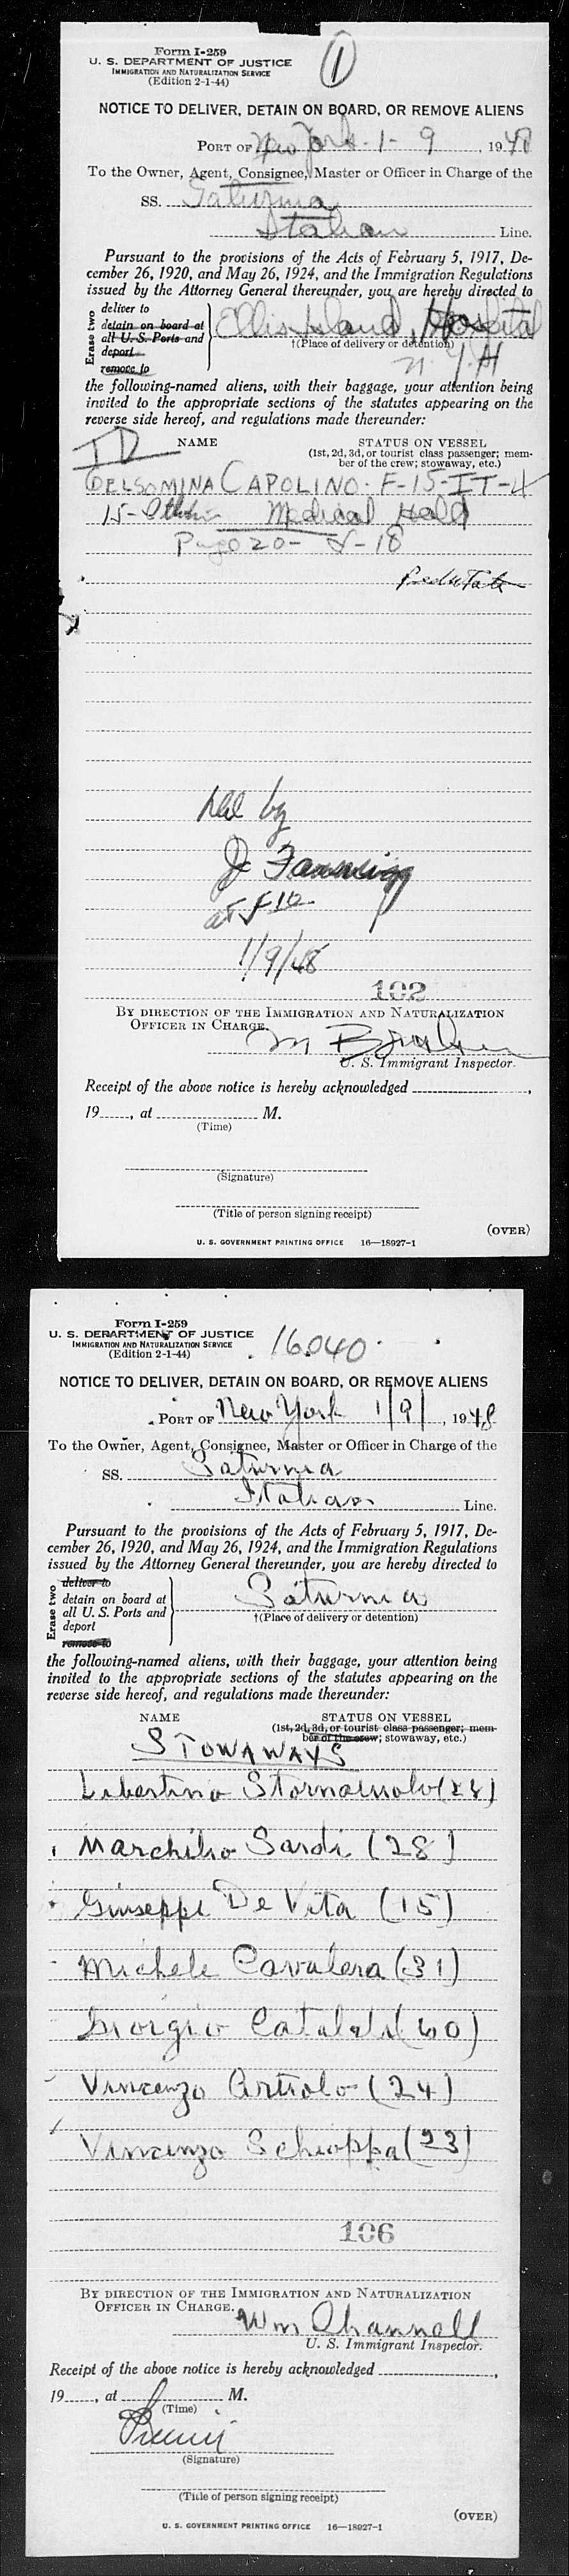 Form I-259
U. S. DEPARTMENT OF JUSTICE
IMMIGRATION AND NATURALIZATION SERVICE
(Edition 2-1-44)
1
NOTICE TO DELIVER, DETAIN ON BOARD, OR REMOVE ALIENS
PORT OF New York 1-9, 1948
To the Owner, Agent, Consignee, Master or Officer in Charge of the
SS. Saturnia
Italian Line.
Pursuant to the provisions of the Acts of February 5, 1917, De-
cember 26, 1920, and May 26, 1924, and the Immigration Regulations
issued by the Attorney General thereunder, you are hereby directed to
Erase two
deliver to
detain on board at
all U. S. Ports and
deport
remove to
Ellis Island, Hospital
†(Place of delivery or detention)
N.Y.H
the following-named aliens, with their baggage, your attention being
invited to the appropriate sections of the statutes appearing on the
reverse side hereof, and regulations made thereunder:
NAME
STATUS ON VESSEL
(1st, 2d, 3d, or tourist class passenger; mem-
ber of the crew; stowaway, etc.)
GELSOMINA CAPOLINO - F-15-IT-4
15- Medical Held
20- 18
held by
J Fanning
at
1/9/48
102
BY DIRECTION OF THE IMMIGRATION AND NATURALIZATION
OFFICER IN CHARGE.
M
U. S. Immigrant Inspector.
Receipt of the above notice is hereby acknowledged ,
19 , at M.
(Time)
(Signature)
(Title of person signing receipt)
(OVER)
U. S. GOVERNMENT PRINTING OFFICE 16—18927-1
Form I-259
U. S. DEPARTMENT OF JUSTICE
IMMIGRATION AND NATURALIZATION SERVICE
(Edition 2-1-44)
16040
NOTICE TO DELIVER, DETAIN ON BOARD, OR REMOVE ALIENS
PORT OF New York 1/9/, 1948
To the Owner, Agent, Consignee, Master or Officer in Charge of the
SS. Saturnia
Italian Line.
Pursuant to the provisions of the Acts of February 5, 1917, De-
cember 26, 1920, and May 26, 1924, and the Immigration Regulations
issued by the Attorney General thereunder, you are hereby directed to
Erase two
deliver to
detain on board at
all U. S. Ports and
deport
remove to
Saturnia
†(Place of delivery or detention)
the following-named aliens, with their baggage, your attention being
invited to the appropriate sections of the statutes appearing on the
reverse side hereof, and regulations made thereunder:
NAME
STATUS ON VESSEL
(1st, 2d, 3d, or tourist class passenger; mem-
ber of the crew; stowaway, etc.)
STOWAWAYS
Libertino Stornaiuolo (28)
Marchilio Sardi (28)
Giuseppi De Vita (15)
Michele Cavalera (31)
Giorgio (40)
Vincenzo (24)
Vincenzo Schioppa (23)
106
BY DIRECTION OF THE IMMIGRATION AND NATURALIZATION
OFFICER IN CHARGE.
Wm Channell
U. S. Immigrant Inspector.
Receipt of the above notice is hereby acknowledged ,
19 , at M.
(Time)
(Signature)
(Title of person signing receipt)
(OVER)
U. S. GOVERNMENT PRINTING OFFICE 16—18927-1